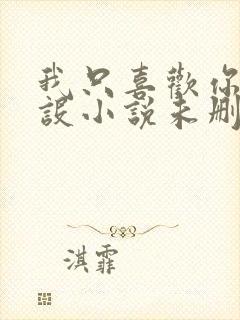 我只喜歡你
設小說未刪
淇霏